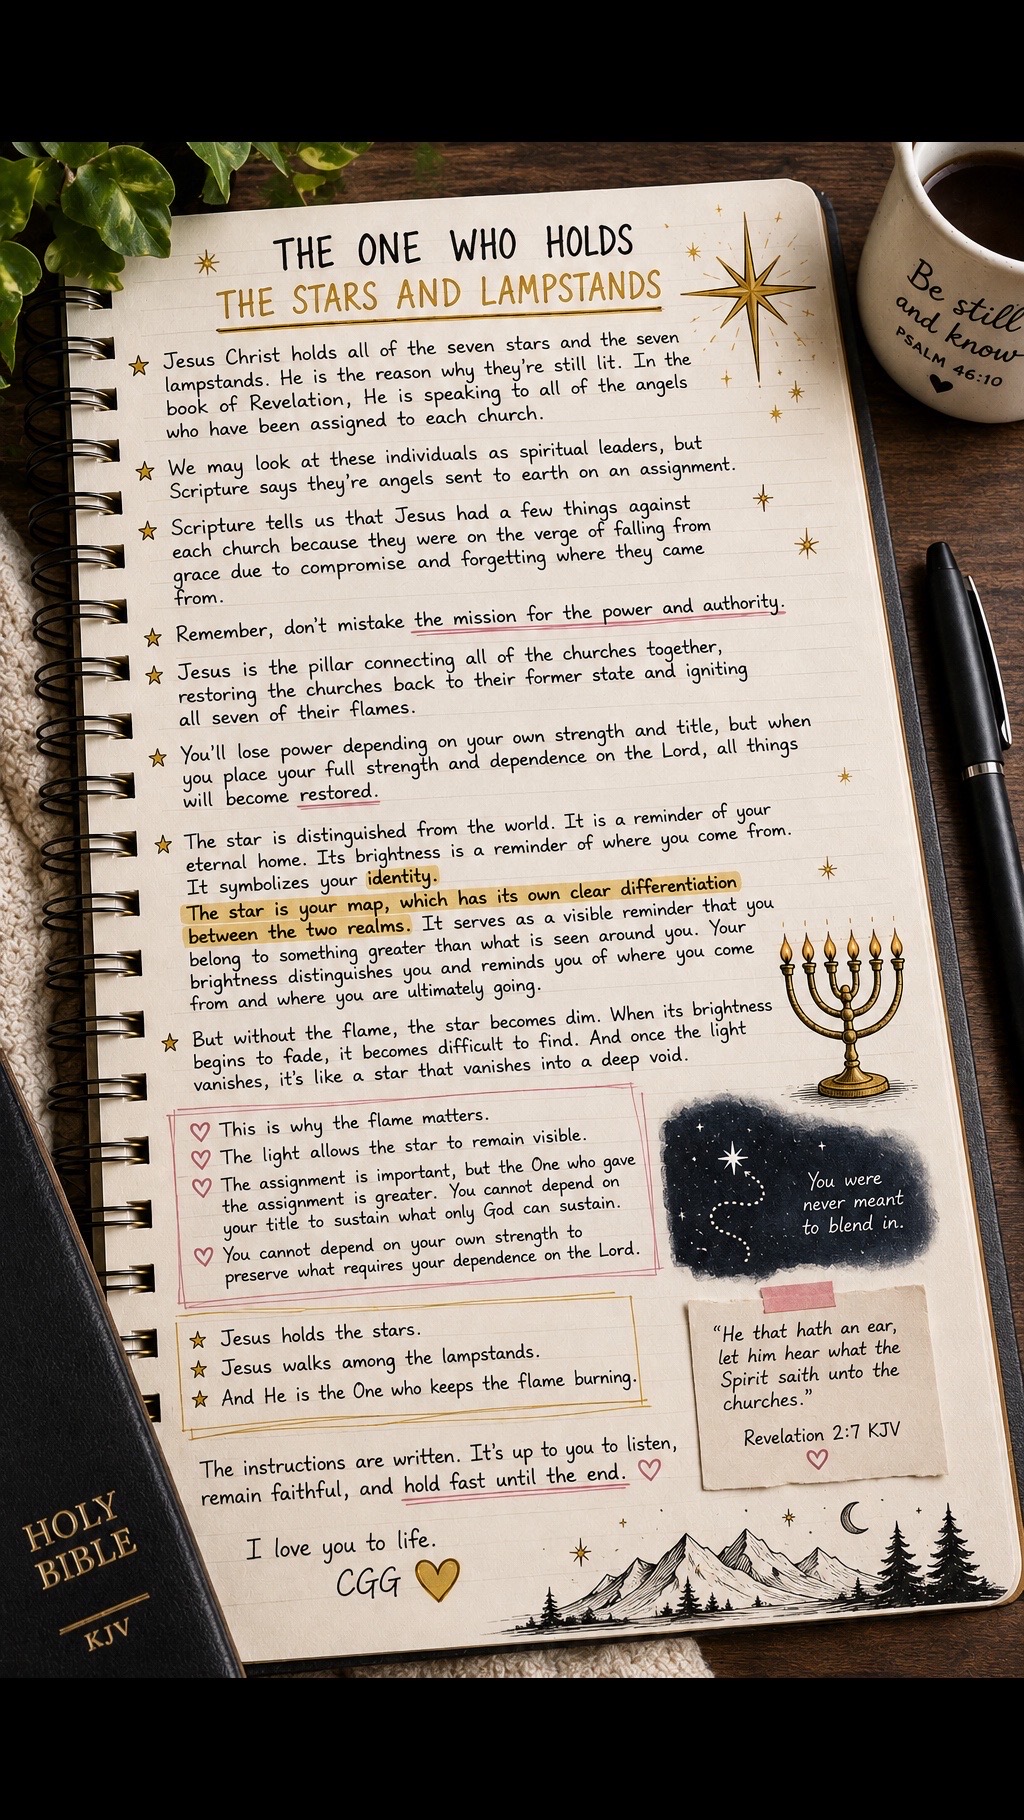 THE ONE WHO HOLDS
THE STARS AND LAMPSTANDS
Jesus Christ holds all of the seven stars and the seven
lampstands. He is the reason why they're still lit. In the
book of Revelation, He is speaking to all of the angels
who have been assigned to each church.
We may look at these individuals as spiritual leaders, but
Scripture says they're angels sent to earth on an assignment.
Scripture tells us that Jesus had a few things against
each church because they were on the verge of falling from
grace due to compromise and forgetting where they came
from.
Remember, don't mistake the mission for the power and authority.
Jesus is the pillar connecting all of the churches together,
restoring the churches back to their former state and igniting
all seven of their flames.
You'll lose power depending on your own strength and title, but when
you place your full strength and dependence on the Lord, all things
will become restored.
The star is distinguished from the world. It is a reminder of your
eternal home. Its brightness is a reminder of where you come from.
It symbolizes your identity.
The star is your map, which has its own clear differentiation
between the two realms. It serves as a visible reminder that you
belong to something greater than what is seen around you. Your
brightness distinguishes you and reminds you of where you come
from and where you are ultimately going.
But without the flame, the star becomes dim. When its brightness
begins to fade, it becomes difficult to find. And once the light
vanishes, it's like a star that vanishes into a deep void.
This is why the flame matters.
The light allows the star to remain visible.
The assignment is important, but the One who gave
the assignment is greater. You cannot depend on
your title to sustain what only God can sustain.
You cannot depend on your own strength to
preserve what requires your dependence on the Lord.
You were
never meant
to blend in.
Jesus holds the stars.
Jesus walks among the lampstands.
And He is the One who keeps the flame burning.
"He that hath an ear,
let him hear what the
Spirit saith unto the
churches."
Revelation 2:7 KJV
The instructions are written. It's up to you to listen,
remain faithful, and hold fast until the end.
I love you to life.
CGG
Be still
and know
PSALM 46:10
HOLY
BIBLE
KJV